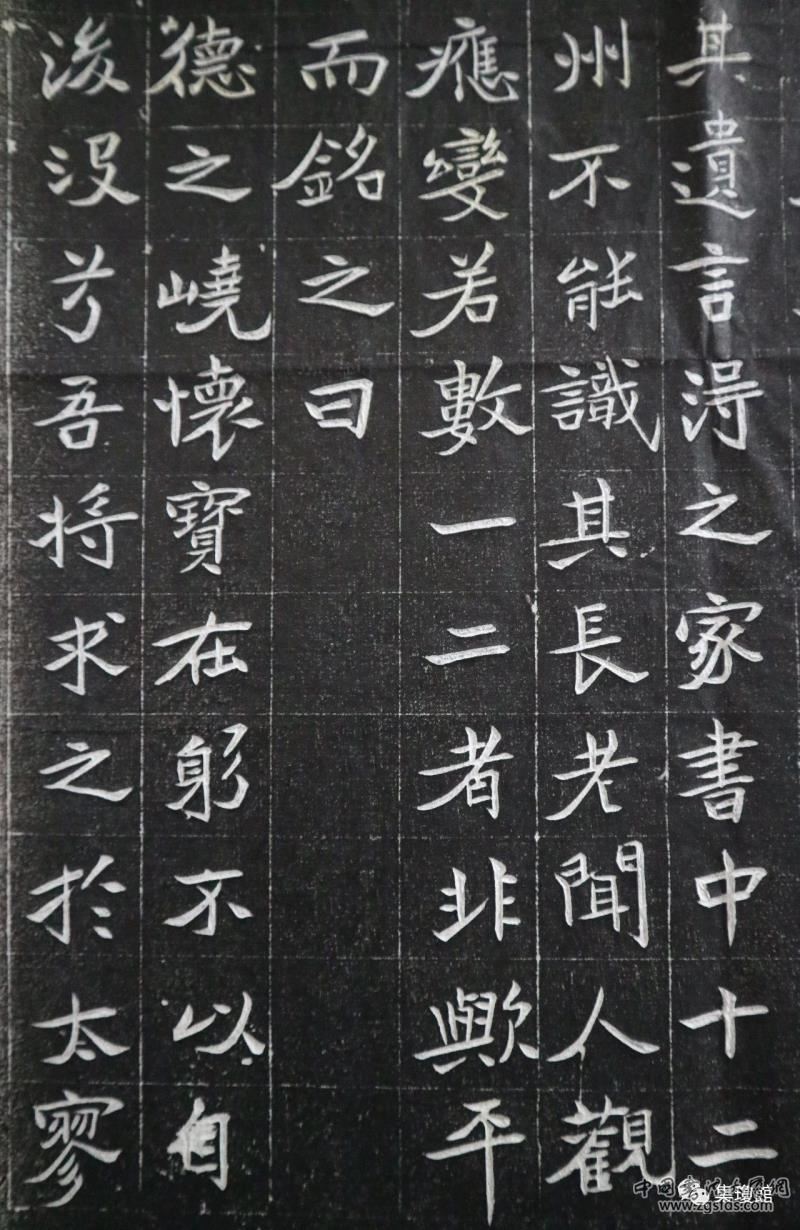 其遺言得之家書中十二
州不能識其長老聞人觀
應變若數一二者非歟平
而銘之曰
德之嶢懷寶在躬不以自
後沒兮吾將求之於太寥
集瓊館
www.zgsfds.com